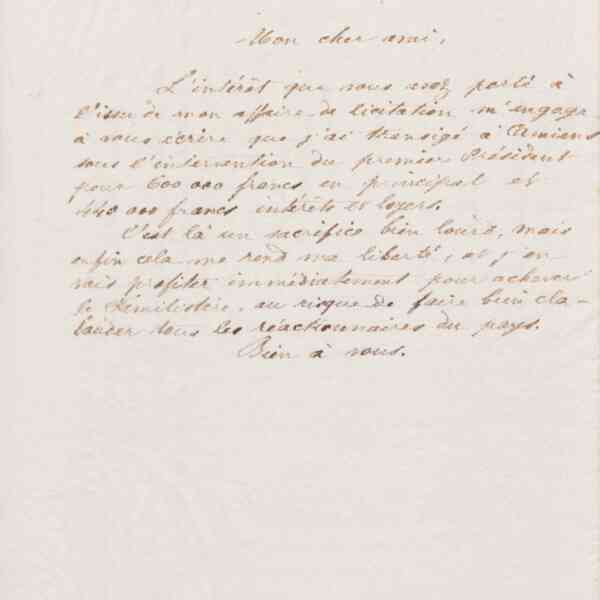 Mon cher ami,
L'intérêt que vous avez porté à
l'issue de mon affaire de licitation m'engage
à vous écrire que j'ai transigé à Amiens
sous l'intervention du premier Président
pour 600 000 francs en principal et
440 000 francs intérêts et loyers.
C'est là un sacrifice bien lourd, mais
enfin cela me rend ma liberté, et j'en
vais profiter immédiatement pour achever
le Familistère, au risque de faire bien cla-
bauder tous les réactionnaires du pays.
Bien à vous.